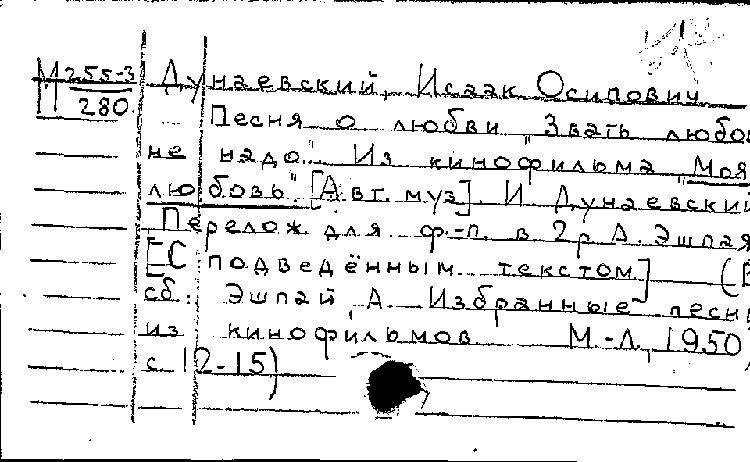 М 255-3 Дунаевский, Исаак Осипович
280 Песня о любви "Звать любов
не надо". Из кинофильма "Моя
любовь" [Авт. муз]. И Дунаевский
Перелож. для ф.-п. в 2р А. Эшпая
[С подведённым текстом] (В
сб.: Эшпай, А. Избранные песни
из кинофильмов М.-Л., 1950,
с 12-15)